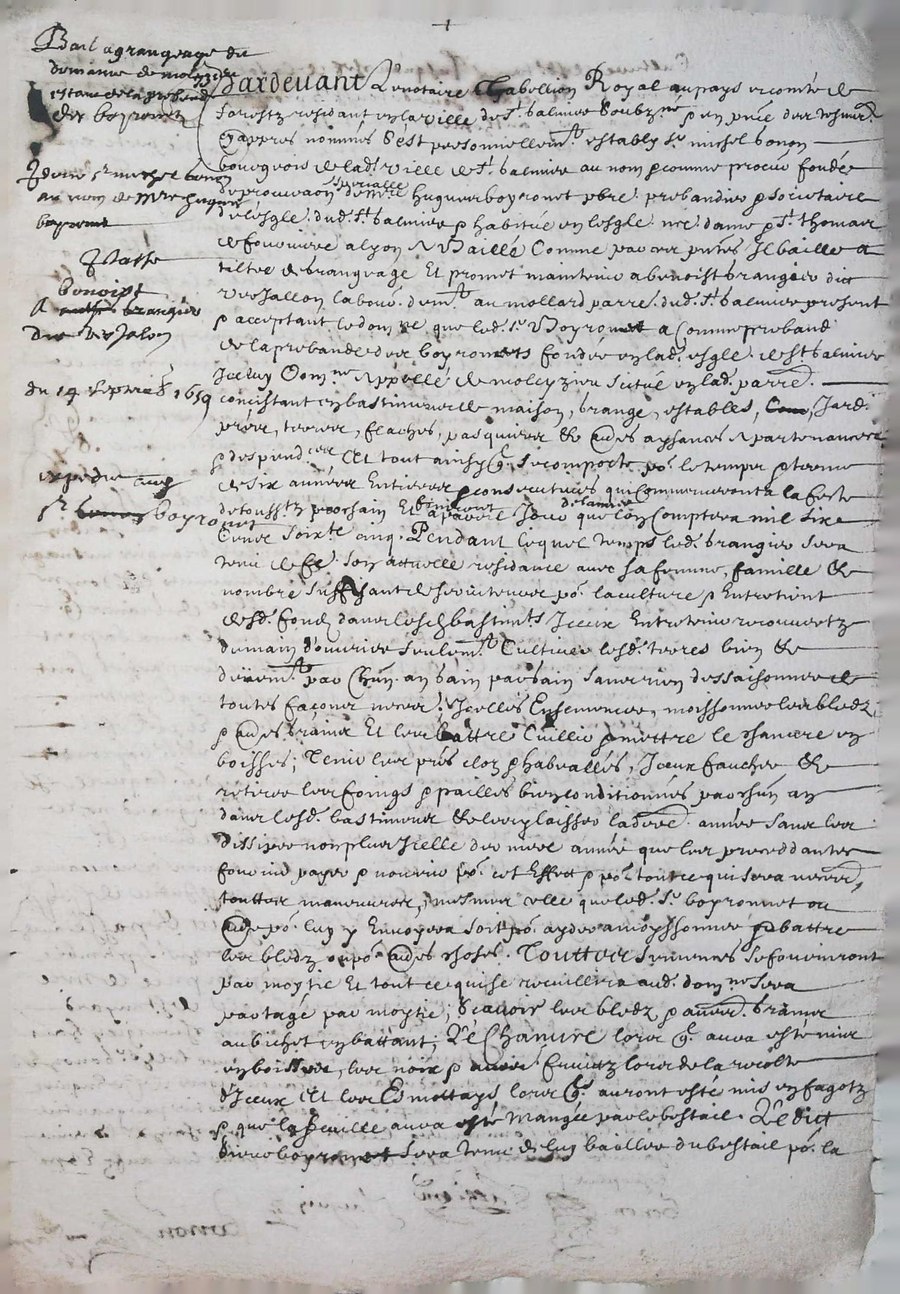 Bail a grangeage du
domainne de moleyzieu
estant de la prebende
des boyronetz
Pardevant Le notaire Tabellion Royal au pays et comté de
forestz residant en la ville de st balmier soubz.né, & en pnce des tesmoins
cy appres nommés s'est personnellemt. estably sr. michel bonon
bourgeois de lad. ville de st. balmier au nom & comme procur. fondé
de procuraon specialle de mre. hugues boyronet pbre prebandier & societaire
de lesgle dud. st balmier & habitué en lesgle nre dame & st. thomas
de forviere a lyon A Baillé Comme par ces pntes Il baille a
tiltre de grangeage Et promet maintenir a benoist grangier dict
Verjallon labour. demt. au mollard parre. dud. st. balmier present
& acceptant le domne que led. sr. Boyronet a Comme preband
de la prebande des boyronets fondée en lad. esgle. de st balmier
Icelluy Domne Appellé de moleyzieu scitué en lad. parre.
concistant en bastiment de maison, grange, estables, Jardi.
prés, terres, flaches, pasquiers & aues aysances Apartenances
& despendces Et tout ainsy q. se comporte po. le temps & terme
de six années Entieres & consecutives qui Commenceront a la feste
de toussts prochain Et finiront a pareil Jour de lannée que lon Comptera mil six
Cents soixte cinq. Pendant lequel temps led. grangier sera
tenu de fe. son actuelle residance avec sa femme, famille &
nombre suffisant de serviteurs po. la culture & Entretient
desd. fondz dans lesd. bastimts Iceux Entretenir recouvertz
de main d'ouvrier seulemt. Cultiver lesd. terres bien &
deuemt. par Chun. an gain par gain sans rien dessaisonner de
toutes façons necess. Icelles Ensemencer, moissonner les bledz
& aues grains Et les battre Cuillir & mettre le chanvre en
boisses; Tenir les prés clos & habeallés, Iceux faucher &
retirer les foings & pailles bien conditionnés par chun an
dans lesd. bastiments & les y laisser la dere. année sans les
dissiper non plus Icelle derniere année que les preceddantes
fournir payer & nourrir po. cet Effect & po. tout ce qui sera necess.
touttes maneuvres, mesmes celle que led. sr. boyronnet ou
aue po. luy y Envoyera soit po. ayder a moyssonner & battre
les bledz ou po. aues choses. Touttes semences se fourniront
par moytié Et tout ce qui se recuillira aud. domne sera
partagé par moytié; scavoir les bledz & aues. grains
au bichet en battant; Le Chanvre lors q. aura esté mis
en boisses, les noix & aues fruictz lors de la recolte
d'Iceux Et les Esmottays lors qs. auront esté mis en fagotz
& que la feuille aura esté mangée par le bestail. Le dict
sieur boyronet sera tenu de luy bailler du bestail po. la
Idem sr michel bonon
au nom de mre hugues
boyronet
Passé
benoist
A grangier
dit Verjalon
du 14 septembre 1659
expedié aud
sr. boyronet